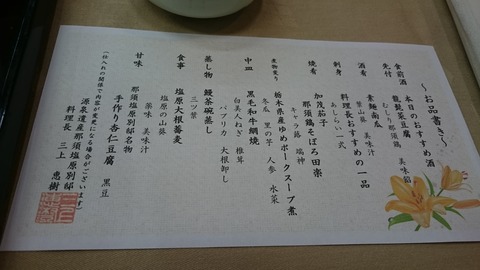 〜お品書き〜
食前酒 本日のおすすめ酒
先付 龍髭菜豆腐 美味餡
むしり那須鶏
酒肴 素麺南瓜 美味汁
葉山葵
刺身 料理長おすすめの一品
あしらい一式
焼肴 加茂茄子
那須鶏そぼろ田楽
キャラ藤 端神
煮物変り 栃木県産ゆめポークスープ煮
冬瓜 里の芋 人参 水菜
中皿 黒毛和牛朝焼
白美人ねぎ 椎茸
パプリカ 大根卸し
蒸し物 鰻茶碗蒸し
三ツ葉
食事 塩原大根蕎麦
塩原の山葵
薬味 美味汁
甘味 那須塩原別邸名物
手作り杏仁豆腐 黒豆
(仕入れの関係で内容が変更になる場合がございます)
源泉遺産那須塩原別邸
料理長 三上 恵樹